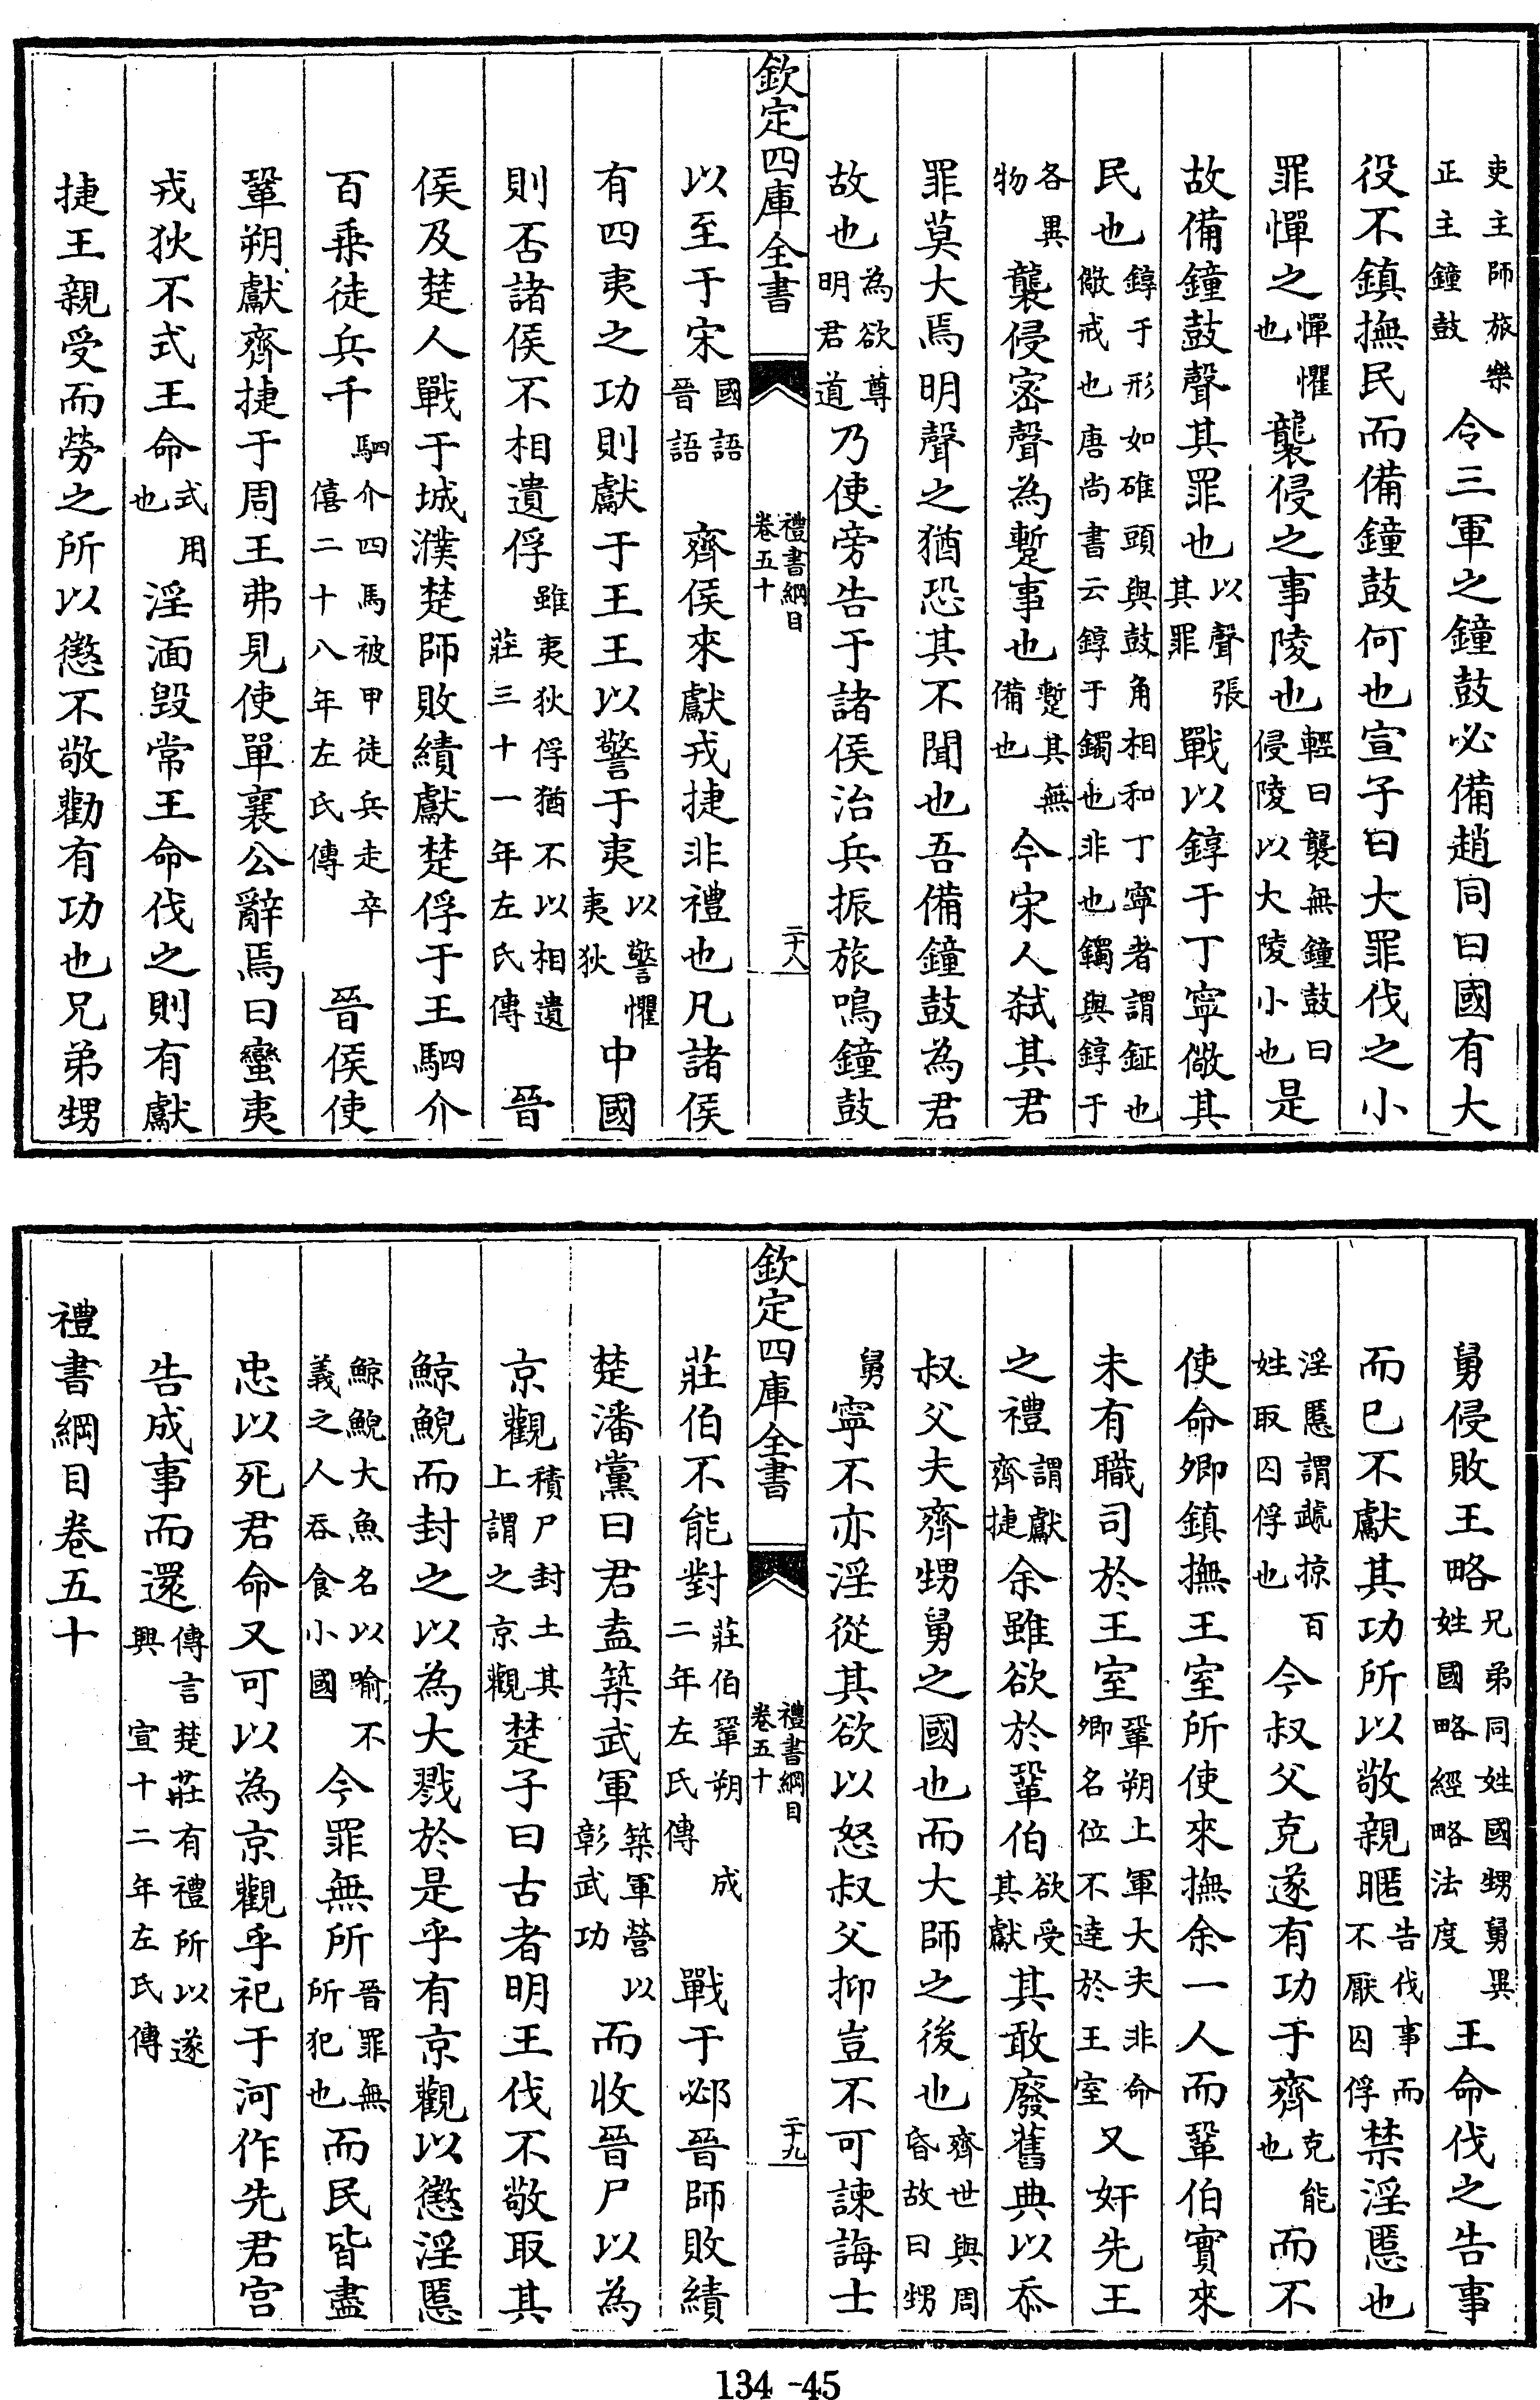 吏主師旅樂正主鐘鼓令三軍之鐘鼓必備趙同曰國有大
役不鎮撫民而備鐘鼓何也宣子曰大罪伐之小
罪憚之憚懼也襲侵之事陵也輕曰襲無鐘鼓曰侵陵以大陵小也是
故備鐘鼓聲其罪也以聲張其罪戰以錞于丁寧儆其
民也錞于形如碓頭與鼓角相和丁寧者謂鉦也儆戒也唐尚書云錞于鐲也非也鐲與錞于
各異物襲侵密聲為蹔事也蹔其無備也今宋人弒其君
罪莫大焉明聲之猶恐其不聞也吾備鐘鼓為君
故也為欲尊明君道乃使旁告于諸侯治兵振旅鳴鐘鼓
欽定四庫全書 禮書綱目卷五十 二十八
以至于宋國語晉語 齊侯來獻戎捷非禮也凡諸侯
有四夷之功則獻于王王以警于夷以警懼夷狄中國
則否諸侯不相遺俘雖夷狄俘猶不以相遺莊三十一年左氏傳 晉
侯及楚人戰于城濮楚師敗績獻楚俘于王駟介
百乘徒兵千駟介四馬被甲徒兵走卒僖二十八年左氏傳 晉侯使
鞏朔獻齊捷于周王弗見使單襄公辭焉曰蠻夷
戎狄不式王命式用也淫湎毀常王命伐之則有獻
捷王親受而勞之所以懲不敬勸有功也兄弟甥
舅侵敗王略兄弟同姓國甥舅異姓國略經略法度王命伐之告事
而已不獻其功所以敬親暱告伐事而不厭囚俘禁淫慝也
淫慝謂虣掠百姓取囚俘也今叔父克遂有功于齊克能也而不
使命卿鎮撫王室所使來撫余一人而鞏伯實來
未有職司於王室鞏朔上軍大夫非命卿名位不達於王室又奸先王
之禮謂獻齊捷余雖欲於鞏伯欲受其獻其敢廢舊典以忝
叔父夫齊甥舅之國也而大師之後也齊世與周昏故曰甥
舅寧不亦淫從其欲以怒叔父抑豈不可諫誨士
欽定四庫全書 禮書綱目卷五十 二十九
莊伯不能對莊伯鞏朔成二年左氏傳 戰于邲晉師敗績
楚潘黨曰君盍築武軍築軍營以彰武功而收晉尸以為
京觀積尸封土其上謂之京觀楚子曰古者明王伐不敬取其
鯨鯢而封之以為大戮於是乎有京觀以懲淫慝
鯨鯢大魚名以喻不義之人吞食小國今罪無所晉罪無所犯也而民皆盡
忠以死君命又可以為京觀乎祀于河作先君宮
告成事而還傳言楚莊有禮所以遂興宣十二年左氏傳
禮書綱目卷五十
134-45